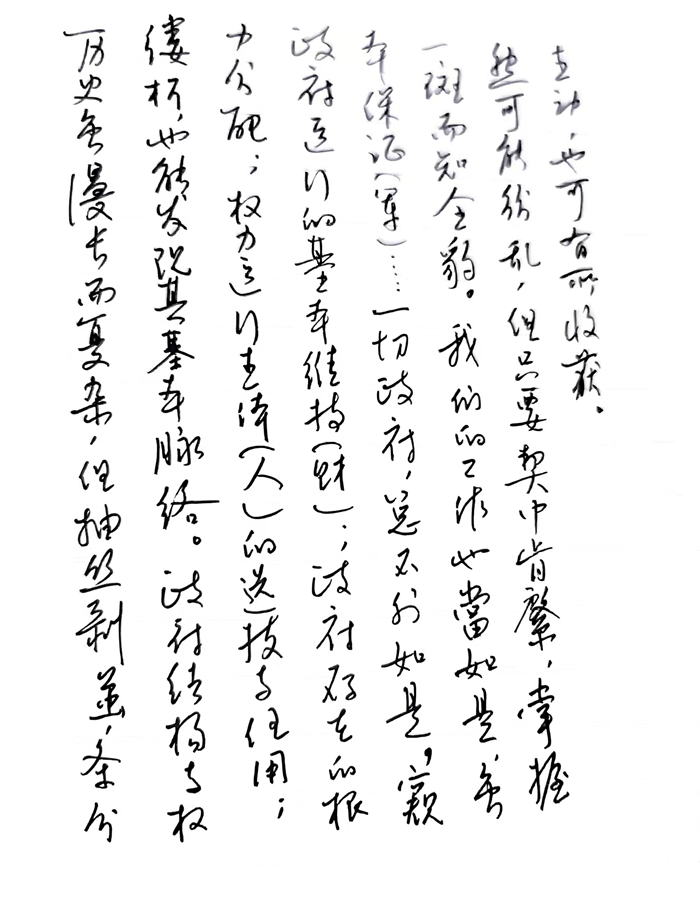 历史虽漫长而复杂，但抽丝剥茧，条分
缕析，也能发现其基本脉络。政府结构与权
力分配；权力运行主体（人）的选拔与任用；
政府运行的基本维持（财）；政府存在的根
本保证（军）……一切政府，总不外如是，窥
一斑而知全豹。我们的工作也當如是虽
然可能纷乱，但只要契中肯綮，掌握
主动，也可有所收获。